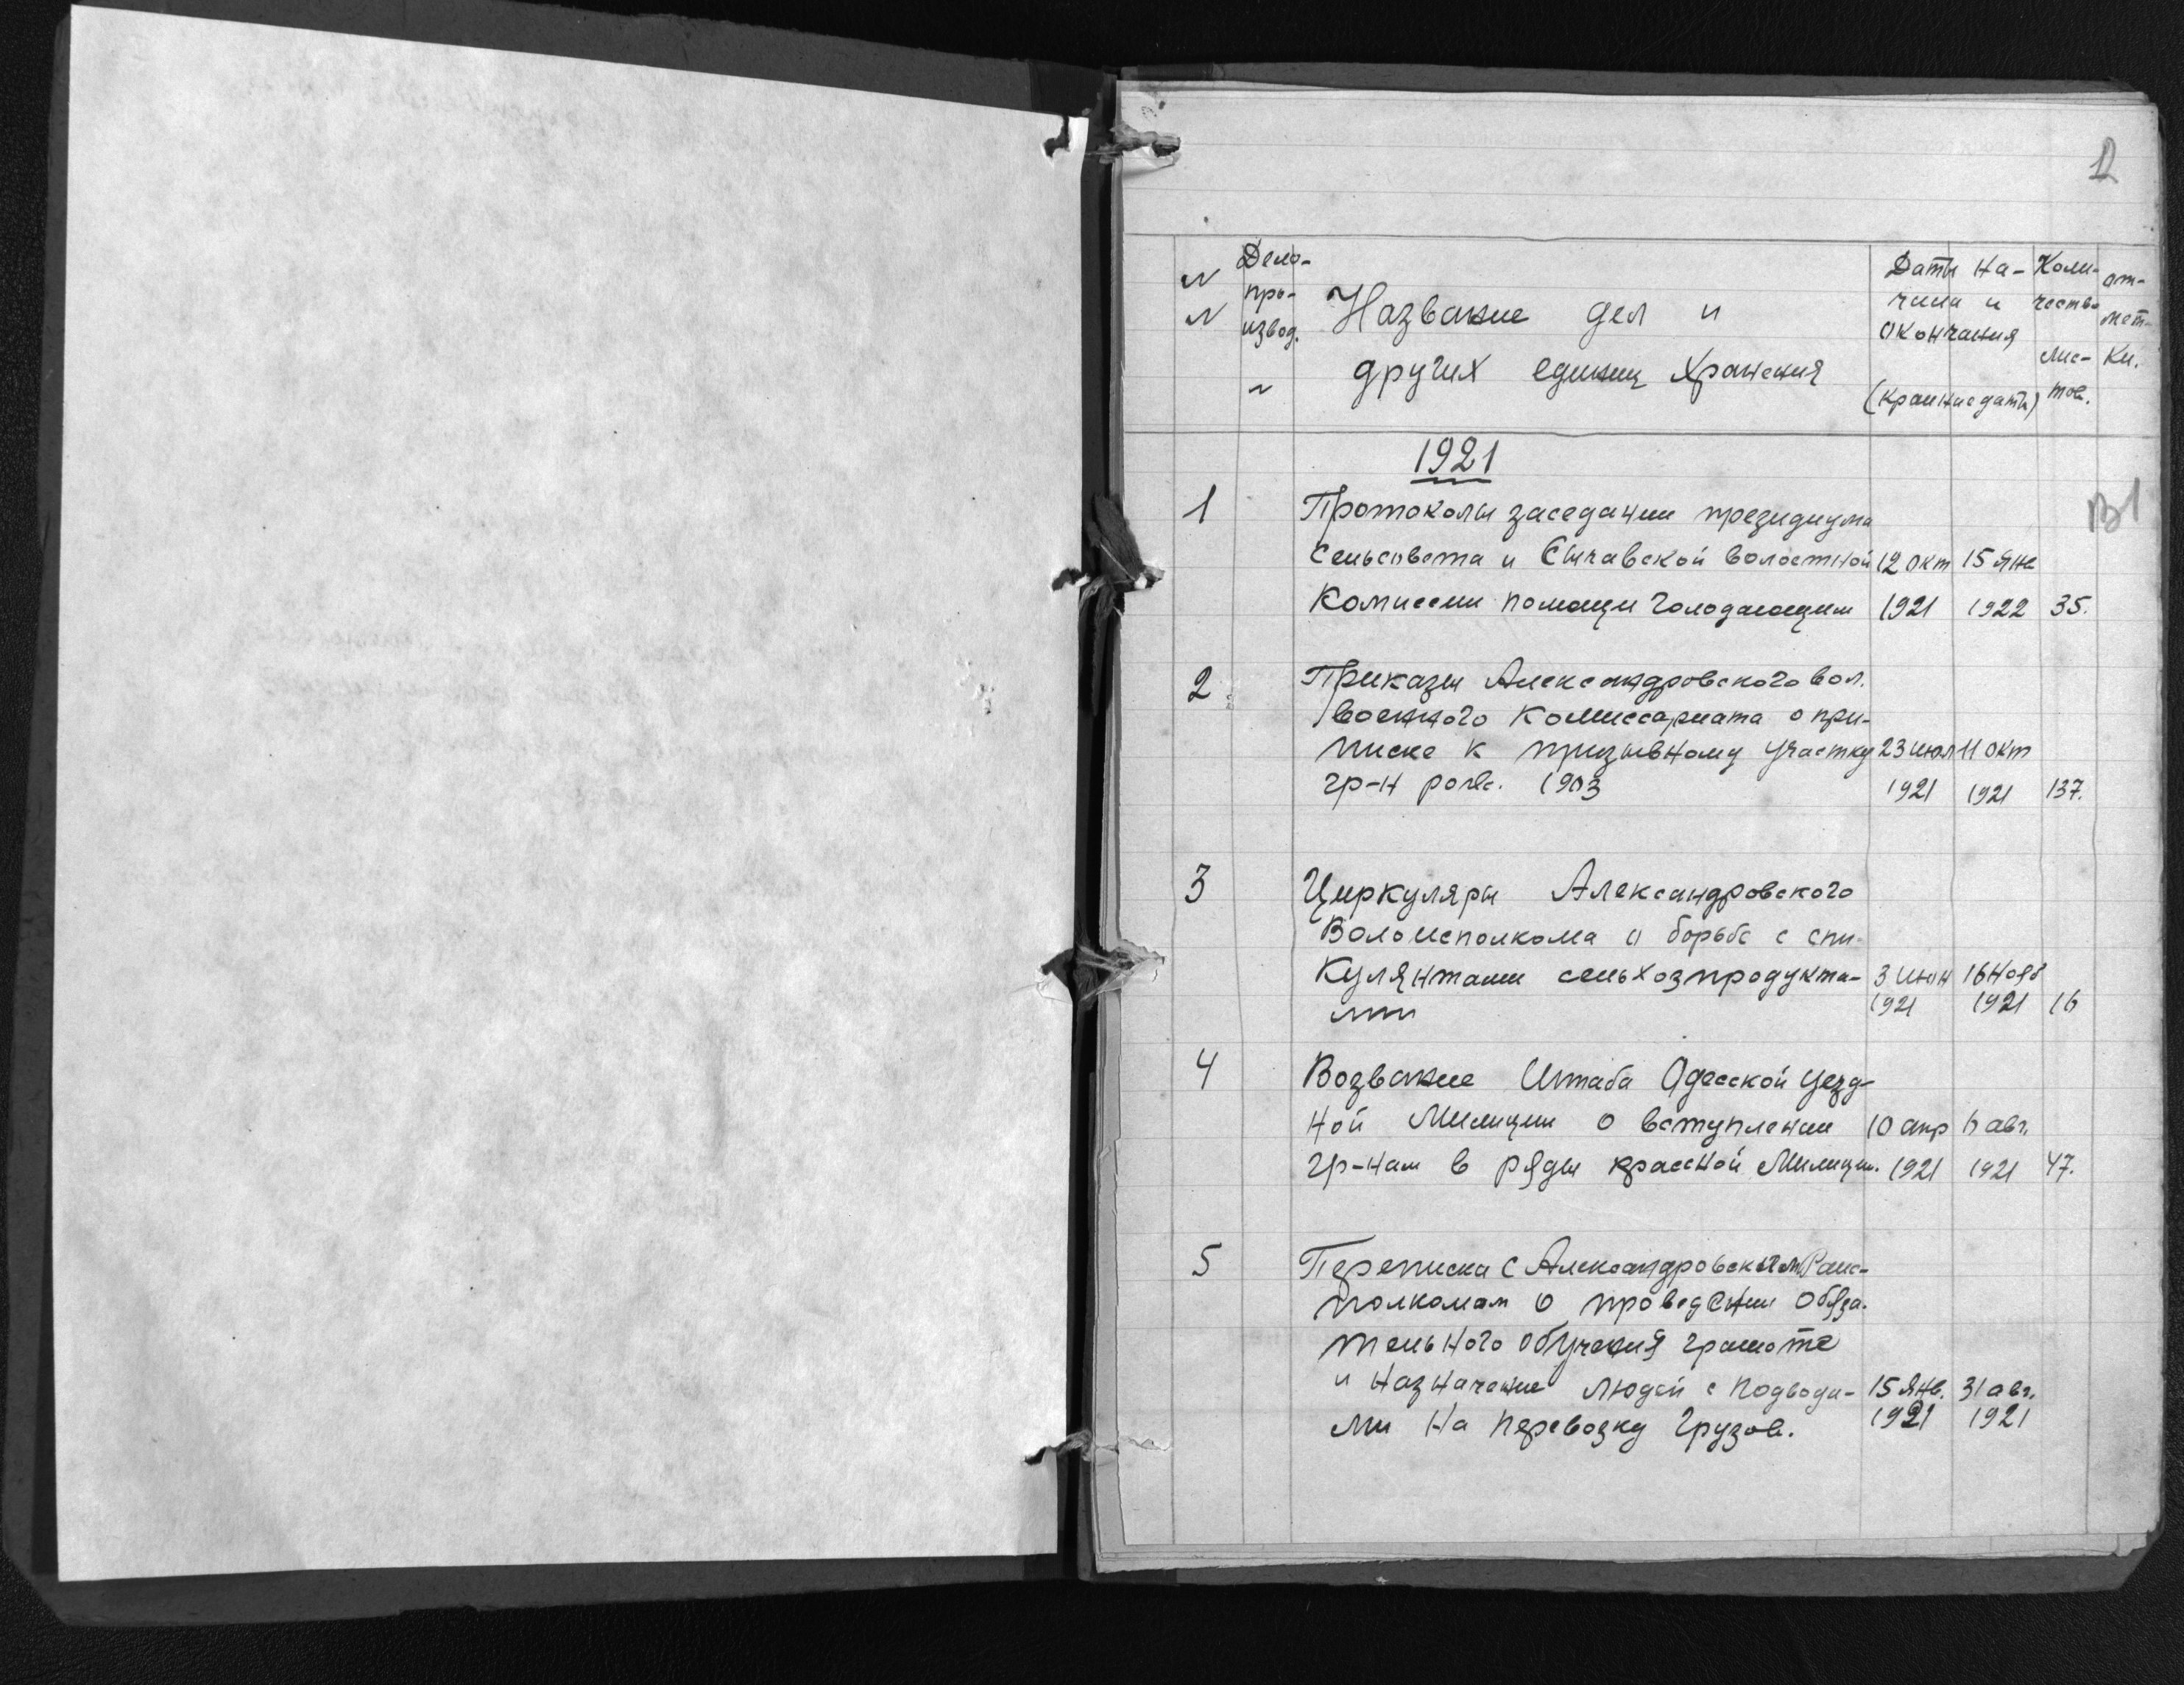 N N
Дело-
про-
извод.
N
Название дел и
других единиц хранения
Даты на-
чала и
окончания
(крайние даты)
Коли-
чество
лис-
тов.
от-
мет-
ки.
1921
1 Протоколы заседании президиума
сельсовета и Сычавской волостной 12 окт 15 янв
Комиссии помощи голодающим 1921 1922 35.
2 Приказы Александровского вол.
военного комиссариата о при-
писке к призывному участку 23 июл 11 окт
гр-н рожд. 1903 1921 1921 137.
3 Циркуляры Александровского
Волоисполкома о борьбе с спи-
кулянтами сельхозпродукта- 3 июн 16 нояб
ми 1921 1921 16
4 Воззвание Штаба Одесской уезд-
ной Милиции о вступлении 10 апр авг.
гр-нам в ряды красной Милиции. 1921 1921 47.
5 Переписка с Александровским Раис-
полкомам о проведении обяза-
тельного обучения грамоте
и назначение людей с подвода- 15 янв. 31 авг.
ми на перевозку грузов. 1921 1921